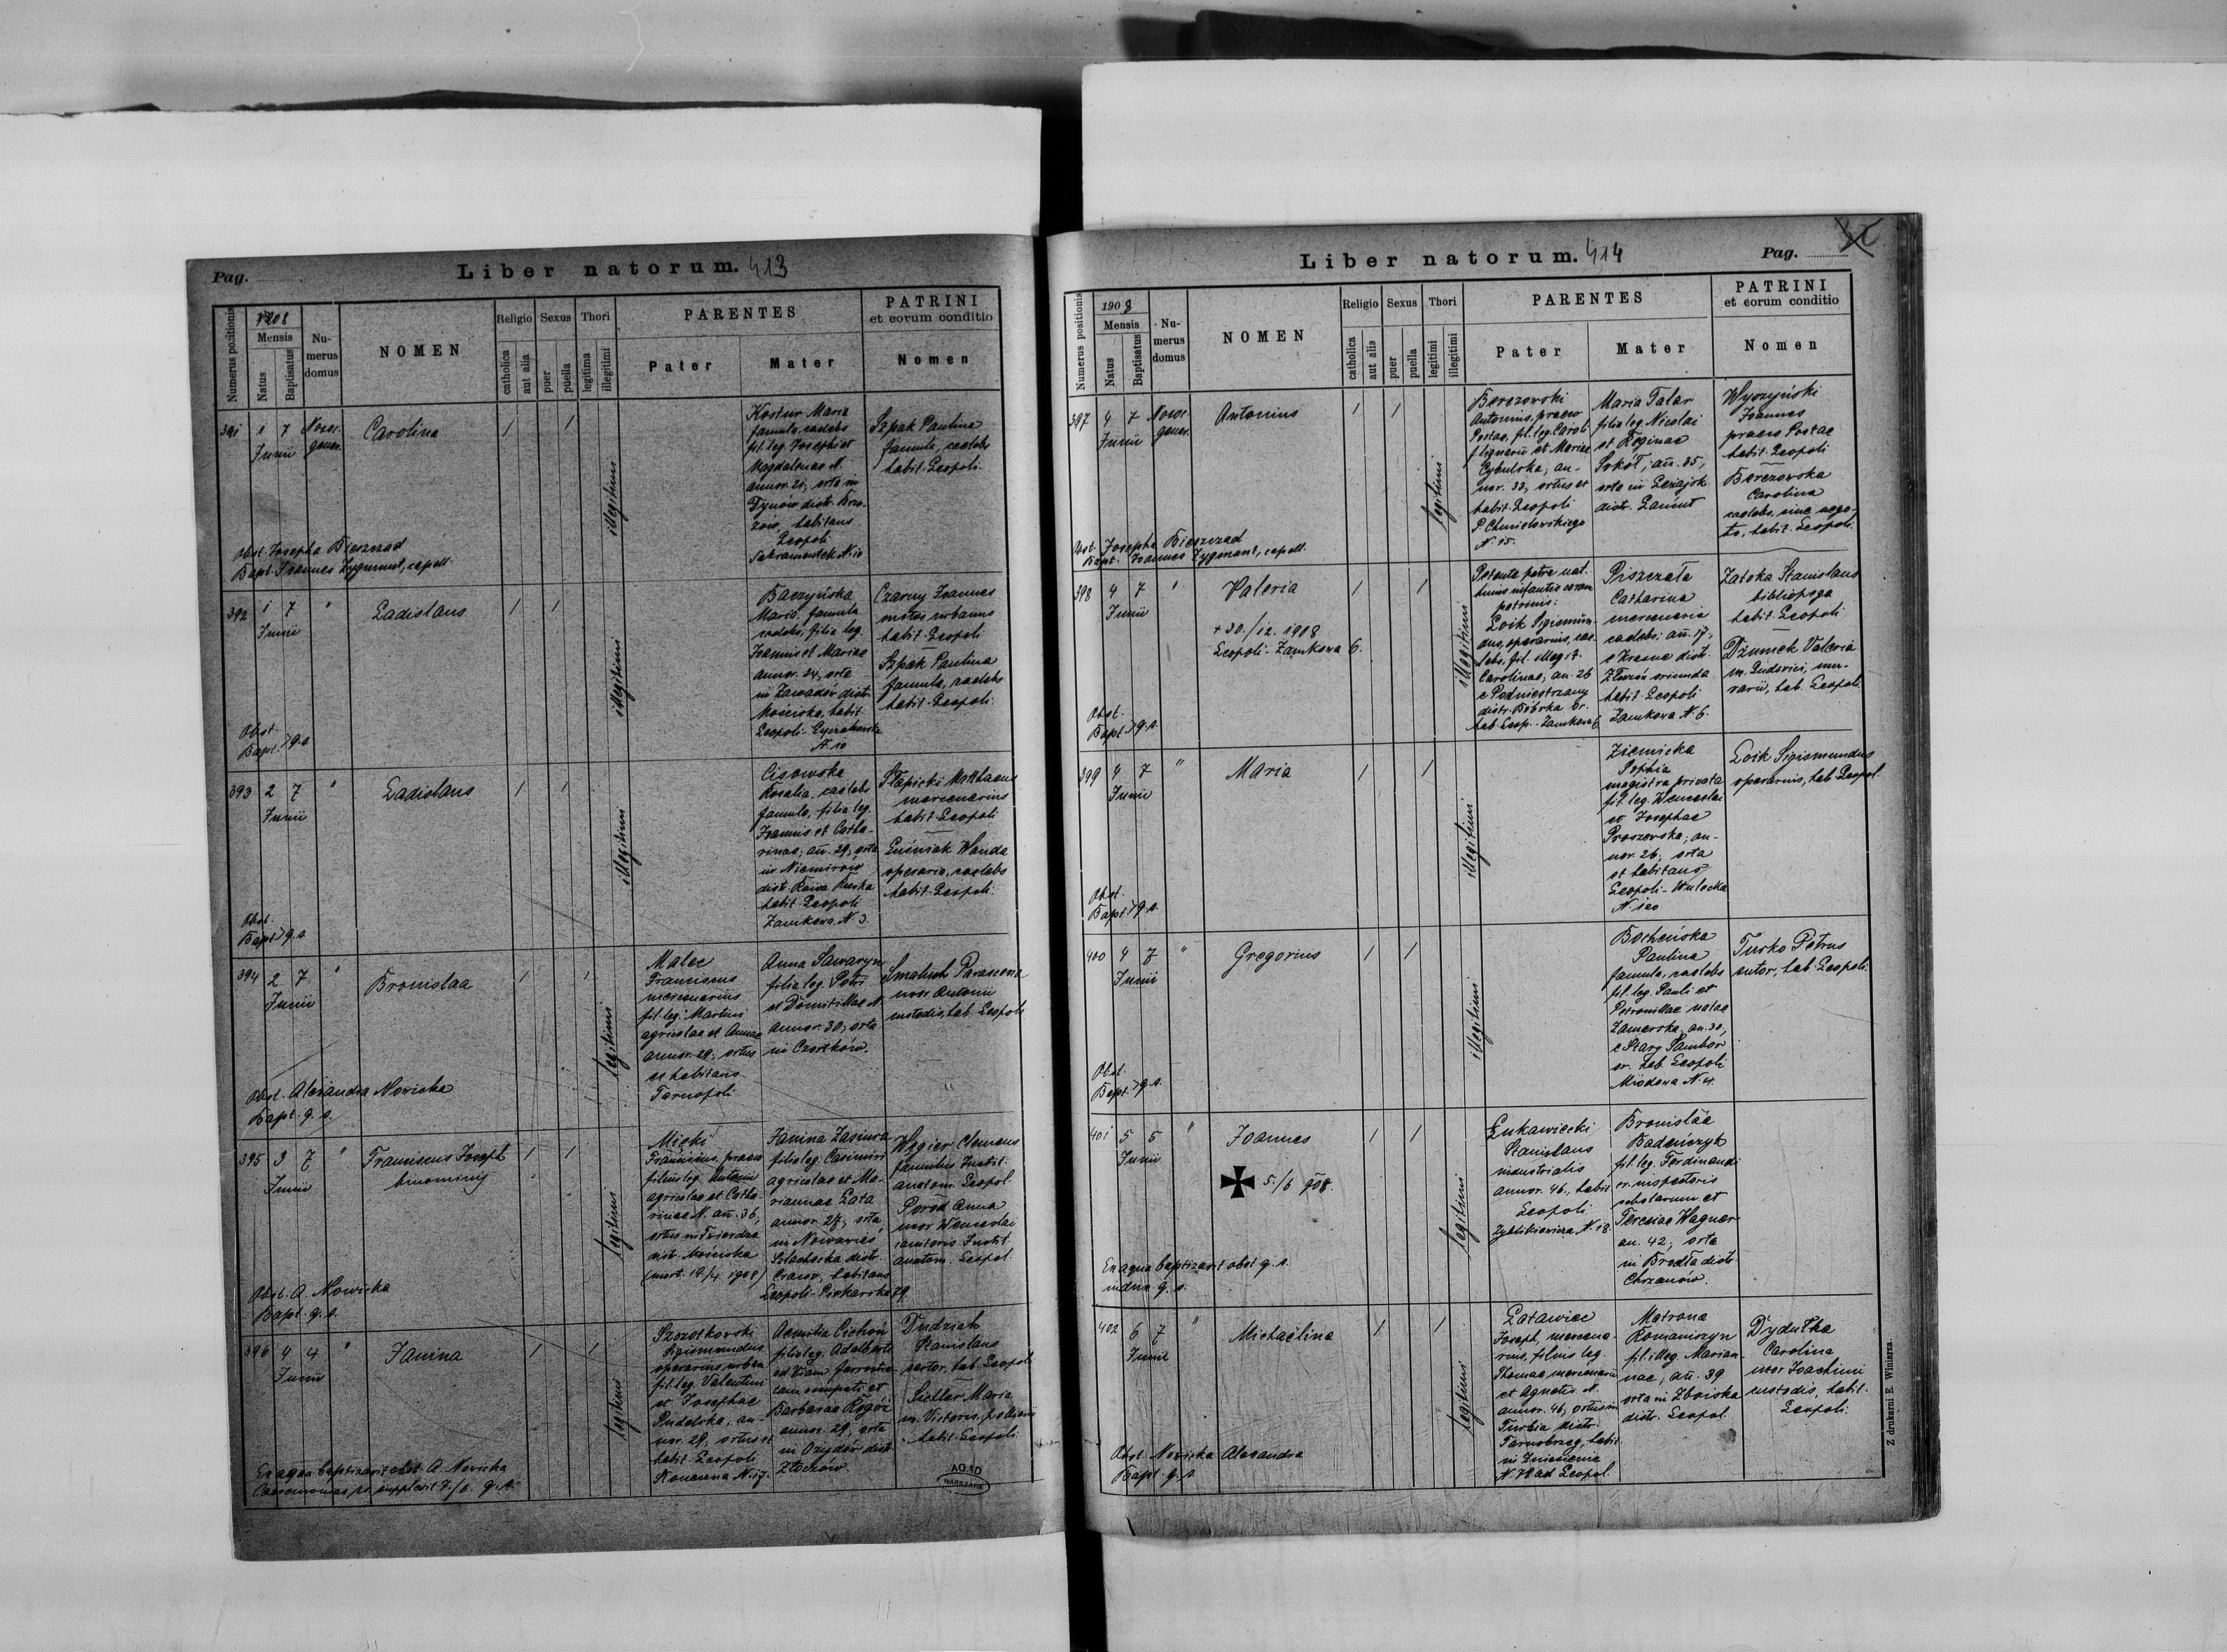 Pag.
Liber natorum. 413
Numerus positionis
1908
Mensis
Natus
Baptisatus
Numerus domus
NOMEN
Religio
catholica
aut alia
Sexus
puer
puella
Thori
legitima
illegitimi
PARENTES
Pater
Mater
PATRINI
et eorum conditio
Nomen
391
1 7
Junii
Carolina
illegitimi
Kostur Maria
famula, caelebs
fil. leg. Josephi et
Magdalenae N.
annor. 21, orta in
Dynów distr. Brzo-
zów, habitans
Leopoli
Sakramentek N. 10
Szpak Paulina
famula, caelebs
habit. Leopoli.
Obst. Josepha Bieszczad
Bapt. Joannes Zygmunt, capell.
392
1 7
Junii
"
Ladislaus
illegitimi
Baczyńska
Maria, famula
caelebs, filia leg.
Joannis et Mariae
annor. 24, orta
in Zawadów distr.
Mościska, habit.
Leopoli-Łyczakowska
N. 10
Czarny Joannes
miles urbanus
habit. Leopoli
Szpak Paulina
famula, caelebs
habit. Leopoli.
Obst.
Bapt. q. s.
393
2 7
Junii
"
Ladislaus
illegitimi
Cisowska
Rosalia, caelebs
famula, filia leg.
Joannis et Catha-
rinae, an. 29, orta
in Niemirow
distr. Rawa Ruska
habit. Leopoli
Zamkowa N. 3.
Matthaeus
mercenarius
habit. Leopoli
Luśniak Wanda
operaria, caelebs
habit. Leopoli.
Obst.
Bapt. q. s.
394
2 7
Junii
"
Bronislaa
legitimi
Malec
Franciscus
mercenarius
fil. leg. Martini
agricolae et Annae
annor. 29, ortus
et habitans
Tarnopoli
Anna Sawaryn
filia leg. Petri
et Domitillae N.
annor. 30, orta
in Czortków.
Smaluch Parascevia
uxor Antonii
custodis, hab. Leopoli
Obst. Alexandra Nowicka
Bapt. q. s.
395
3 7
Junii
"
Franciscus Joseph
binominis
legitimi
Micki
Franciscus, praeco
filius leg. Antonii
agricolae et Catha-
rinae N. an. 36,
ortus in Twierdza
distr. Mościska
(mort. 19/4. 1908)
Janina Zasiura
filia leg. Casimiri
agricolae et Ma-
riannae Łata
annor. 27, orta
in Nowawieś
Szlachecka distr.
Cracov., habitans
Leopoli-Piekarska 79.
Węgier Clemens
famulus Instit.
anatom. Leopol.
Porod Anna
uxor Wenceslai
ianitoris Instit.
anatom. Leopol.
Obst. A. Nowicka
Bapt. q. s.
396
4 4
Junii
"
Janina
legitimi
Szczotkowski
Sigismundus
operarius urban.
fil. leg. Valentini
et Josephae
Pudelska, an-
nor. 29, ortus et
habit. Leopoli
N. 17.
Aemilia Cichoń
filia leg. Adalberti
ad viam ferream
occupati et
Barbarae Rogóż
annor. 29, orta
in Ożydów distr.
Złoczów.
Dudziak
Stanislaus
sartor, hab. Leopoli
Maria
ux. Victoris,
habit. Leopoli
Ex aqua baptizavit obst. A. Nowicka
Caeremonias ps. supplevit 7./6. q. s.
AGAD
WARSZAWA
Liber natorum. 414
Pag.
Numerus positionis
1908
Mensis
Natus
Baptisatus
Numerus domus
NOMEN
Religio
catholica
aut alia
Sexus
puer
puella
Thori
legitimi
illegitimi
PARENTES
Pater
Mater
PATRINI
et eorum conditio
Nomen
397
4 7
Junii
Antonius
legitimi
Berezowski
Antonius, praeco
Postae, fil. leg. Caroli
lignarii et Mariae
Cybulska, an-
nor. 33, ortus et
habit. Leopoli
P. Chmielowskiego
N. 15.
Maria Talar
filia leg. Nicolai
et Reginae
Sokół, an. 35,
orta in Leżajsk
distr. Łańcut
Wyczyński
Joannes
praeco Postae
habit. Leopoli
Berezowska
Carolina
caelebs, sine nego-
tio, habit. Leopoli.
Obst. Josepha Bieszczad
Bapt. Joannes Zygmunt, capell.
398
4 7
Junii
"
Valeria
+ 30./12. 1908
Leopoli-Zamkowa 6.
illegitimi
Petente patre nat.
huius infantis coram
patrinis:
Loik Sigismun-
dus, operarius, cae-
lebs, fil. illegit.
Carolinae, an. 26
e Podniestrzany
distr. Bóbrka or.
hab. Leop.-Zamkowa 6
Piszczała
Catharina
mercenaria
caelebs, an. 17,
e Krasne distr.
Złoczów oriunda
habit. Leopoli
Zamkowa N. 6.
Zatoka Stanislaus
bibliopega
habit. Leopoli
Dziumek Valeria
ux. Ludovici, mu-
rarii, hab. Leopoli
Obst.
Bapt. q. s.
399
4 7
Junii
"
Maria
illegitimi
Ziemicka
Sophia
magistra privata
fil. leg. Wenceslai
et Josephae
Proszowska, an-
nor. 26, orta
et habitans
Leopoli-Wulecka
N. 120
Loik Sigismundus
operarius, hab. Leopol.
Obst.
Bapt. q. s.
400
4 7
Junii
"
Gregorius
illegitimi
Bocheńska
Paulina
famula, caelebs
fil. leg. Pauli et
Petronillae natae
Zamerska, an. 30,
e Stary Sambor
or. hab. Leopoli
Miodowa N. 4.
Turko Petrus
sutor, hab. Leopoli.
Obst.
Bapt. q. s.
401
5 5
Junii
"
Joannes
✠ 5./6 908.
legitimi
Łukawiecki
Stanislaus
industrialis
annor. 46, habit.
Leopoli
Zyblikiewicza N. 18.
Bronislaa
Badeńczyk
fil. leg. Ferdinandi
cr. inspectoris
scholarum et
Teresiae Wagner
an. 42, orta
in Brodła distr.
Chrzanów.
Ex aqua baptizavit obst. q. s.
q. s.
402
6 7
Junii
"
Michaëlina
legitimi
Latawiec
Joseph, mercena-
rius, filius leg.
Thomae mercenarii
et Agnetis N.
annor. 46, ortus in
Turbia distr.
Tarnobrzeg, habit.
in Zniesienie
N. 78 ad Leopol.
Matrona
Romaniszyn
fil. illeg. Marian-
nae, an. 39
orta in Zboiska
distr. Leopol.
Dydułka
Carolina
uxor Joachimi
custodis, habit.
Leopoli.
Obst. Nowicka Alexandra
Bapt. q. s.
Z drukarni E. Winiarza.